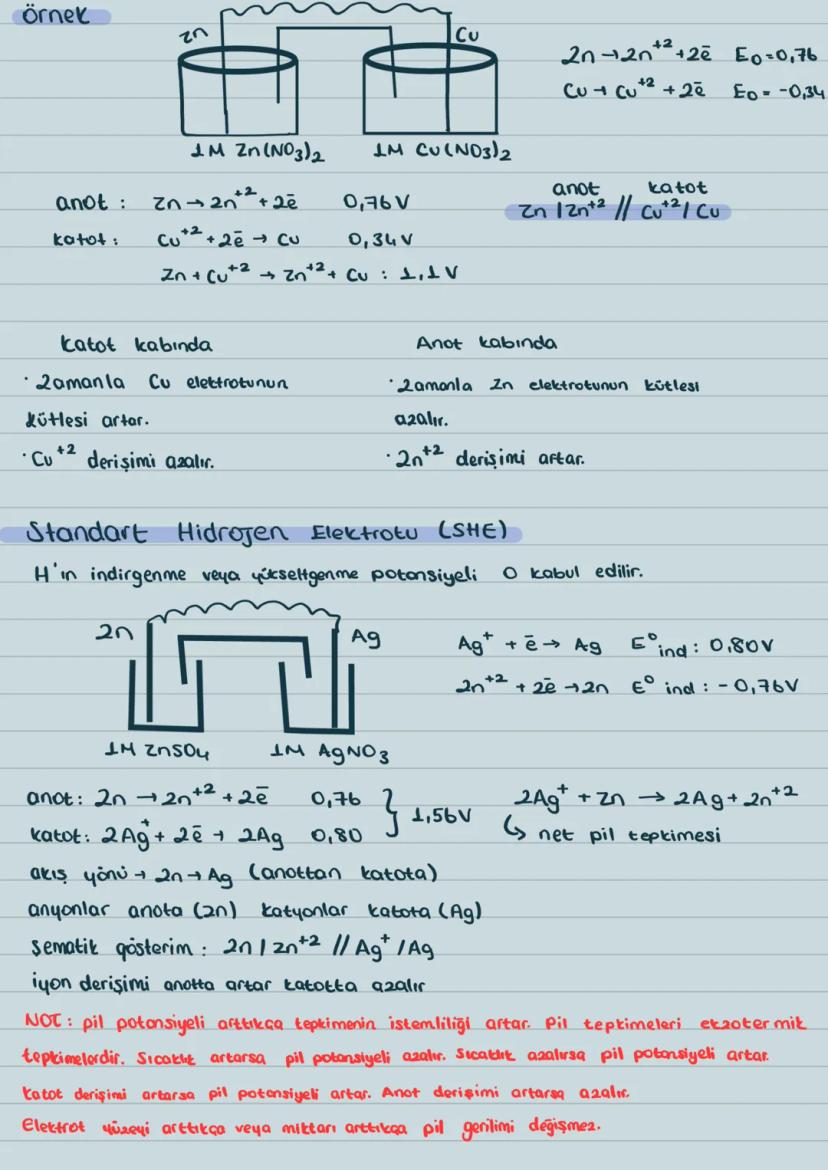 örnek
Zn Cu
Zn → Zn⁺² + 2ē E₀=0,76
Cu → Cu⁺² + 2ē E₀ = -0,34
1M Zn(NO₃)₂ 1M Cu(NO₃)₂
anot : Zn → Zn⁺² + 2ē 0,76 V
katot : Cu⁺² + 2ē → Cu 0,34 V
Zn + Cu⁺² → Zn⁺² + Cu : 1,1 V
anot katot
Zn | Zn⁺² // Cu⁺² | Cu
Katot kabında
· Zamanla Cu elektrotunun
kütlesi artar.
· Cu⁺² derişimi azalır.
Anot kabında
· Zamanla Zn elektrotunun kütlesi
azalır.
· Zn⁺² derişimi artar.
Standart Hidrojen Elektrotu (SHE)
H'ın indirgenme veya yükseltgenme potansiyeli 0 kabul edilir.
Zn Ag
Ag⁺ + ē → Ag E° ind : 0,80V
Zn⁺² + 2ē → Zn E° ind : -0,76V
1M ZnSO₄ 1M AgNO₃
anot: Zn → Zn⁺² + 2ē 0,76
katot: 2Ag⁺ + 2ē → 2Ag 0,80
} 1,56V
2Ag⁺ + Zn → 2Ag + Zn⁺²
↳ net pil tepkimesi
akış yönü → Zn → Ag (anottan katota)
anyonlar anota (Zn) katyonlar katota (Ag)
şematik gösterim : Zn | Zn⁺² // Ag⁺ / Ag
iyon derişimi anotta artar katotta azalır
NOT : pil potansiyeli arttıkça tepkimenin istemliliği artar. Pil tepkimeleri ekzotermik
tepkimelerdir. Sıcaklık artarsa pil potansiyeli azalır. Sıcaklık azalırsa pil potansiyeli artar.
Katot derişimi artarsa pil potansiyeli artar. Anot derişimi artarsa azalır.
Elektrot yüzeyi arttıkça veya miktarı arttıkça pil gerilimi değişmez.